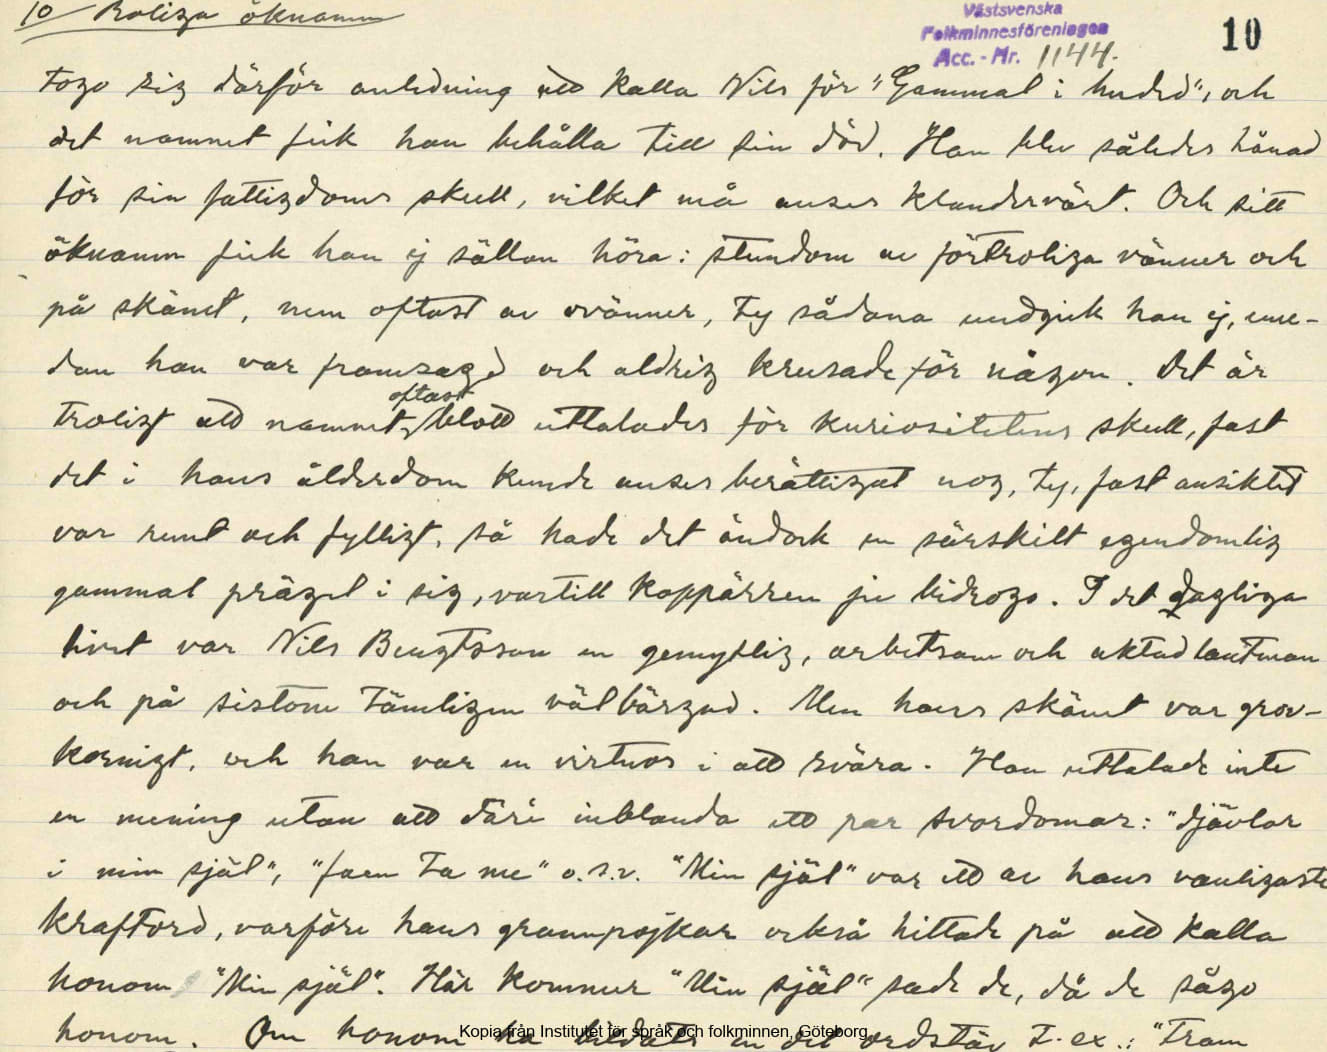 10 Roliga öknamn
Västsvenska
Folkminnesföreningen
Acc. - Nr. 1144.
10
togo sig därför anledning att kalla Nils för "Gammal i hudd", och
det namnet fick han behålla till sin död. Han blev således hånad
för sin fattigdoms skull, vilket må anses klandervärt. Och sitt
öknamn fick han ej sällan höra: stundom av förtroliga vänner och
på skämt, men oftast av ovänner, ty sådana undgick han ej, eme-
dan han var framsagd och aldrig krusade för någon. Det är
troligt att namnet oftast blott uttalades för kuriositetens skull, fast
det i hans ålderdom kunde anses berättigat nog, ty, fast ansiktet
var runt och fylligt, så hade det ändock en särskilt egendomlig
gammal prägel i sig, vartill koppärren ju bidrogo. I det dagliga
livet var Nils Bengtsson en gemytlig, arbetsam och aktad lantman
och på sistone tämligen välbärgad. Men hans skämt var grov-
kornigt, och han var en virtuos i att svära. Han uttalade inte
en mening utan att däri inblanda ett par svordomar: "djävlar
i min själ", "faen ta me" o.s.v. "Min själ" var ett av hans vanligaste
kraftord, varföre hans grannpojkar också hittade på att kalla
honom "Min själ". Här kommer "Min själ" sade de, då de sågo
honom. Om honom ha bildats en del ordstäv t.ex.: "Fram
Kopia från Institutet för språk och folkminnen, Göteborg